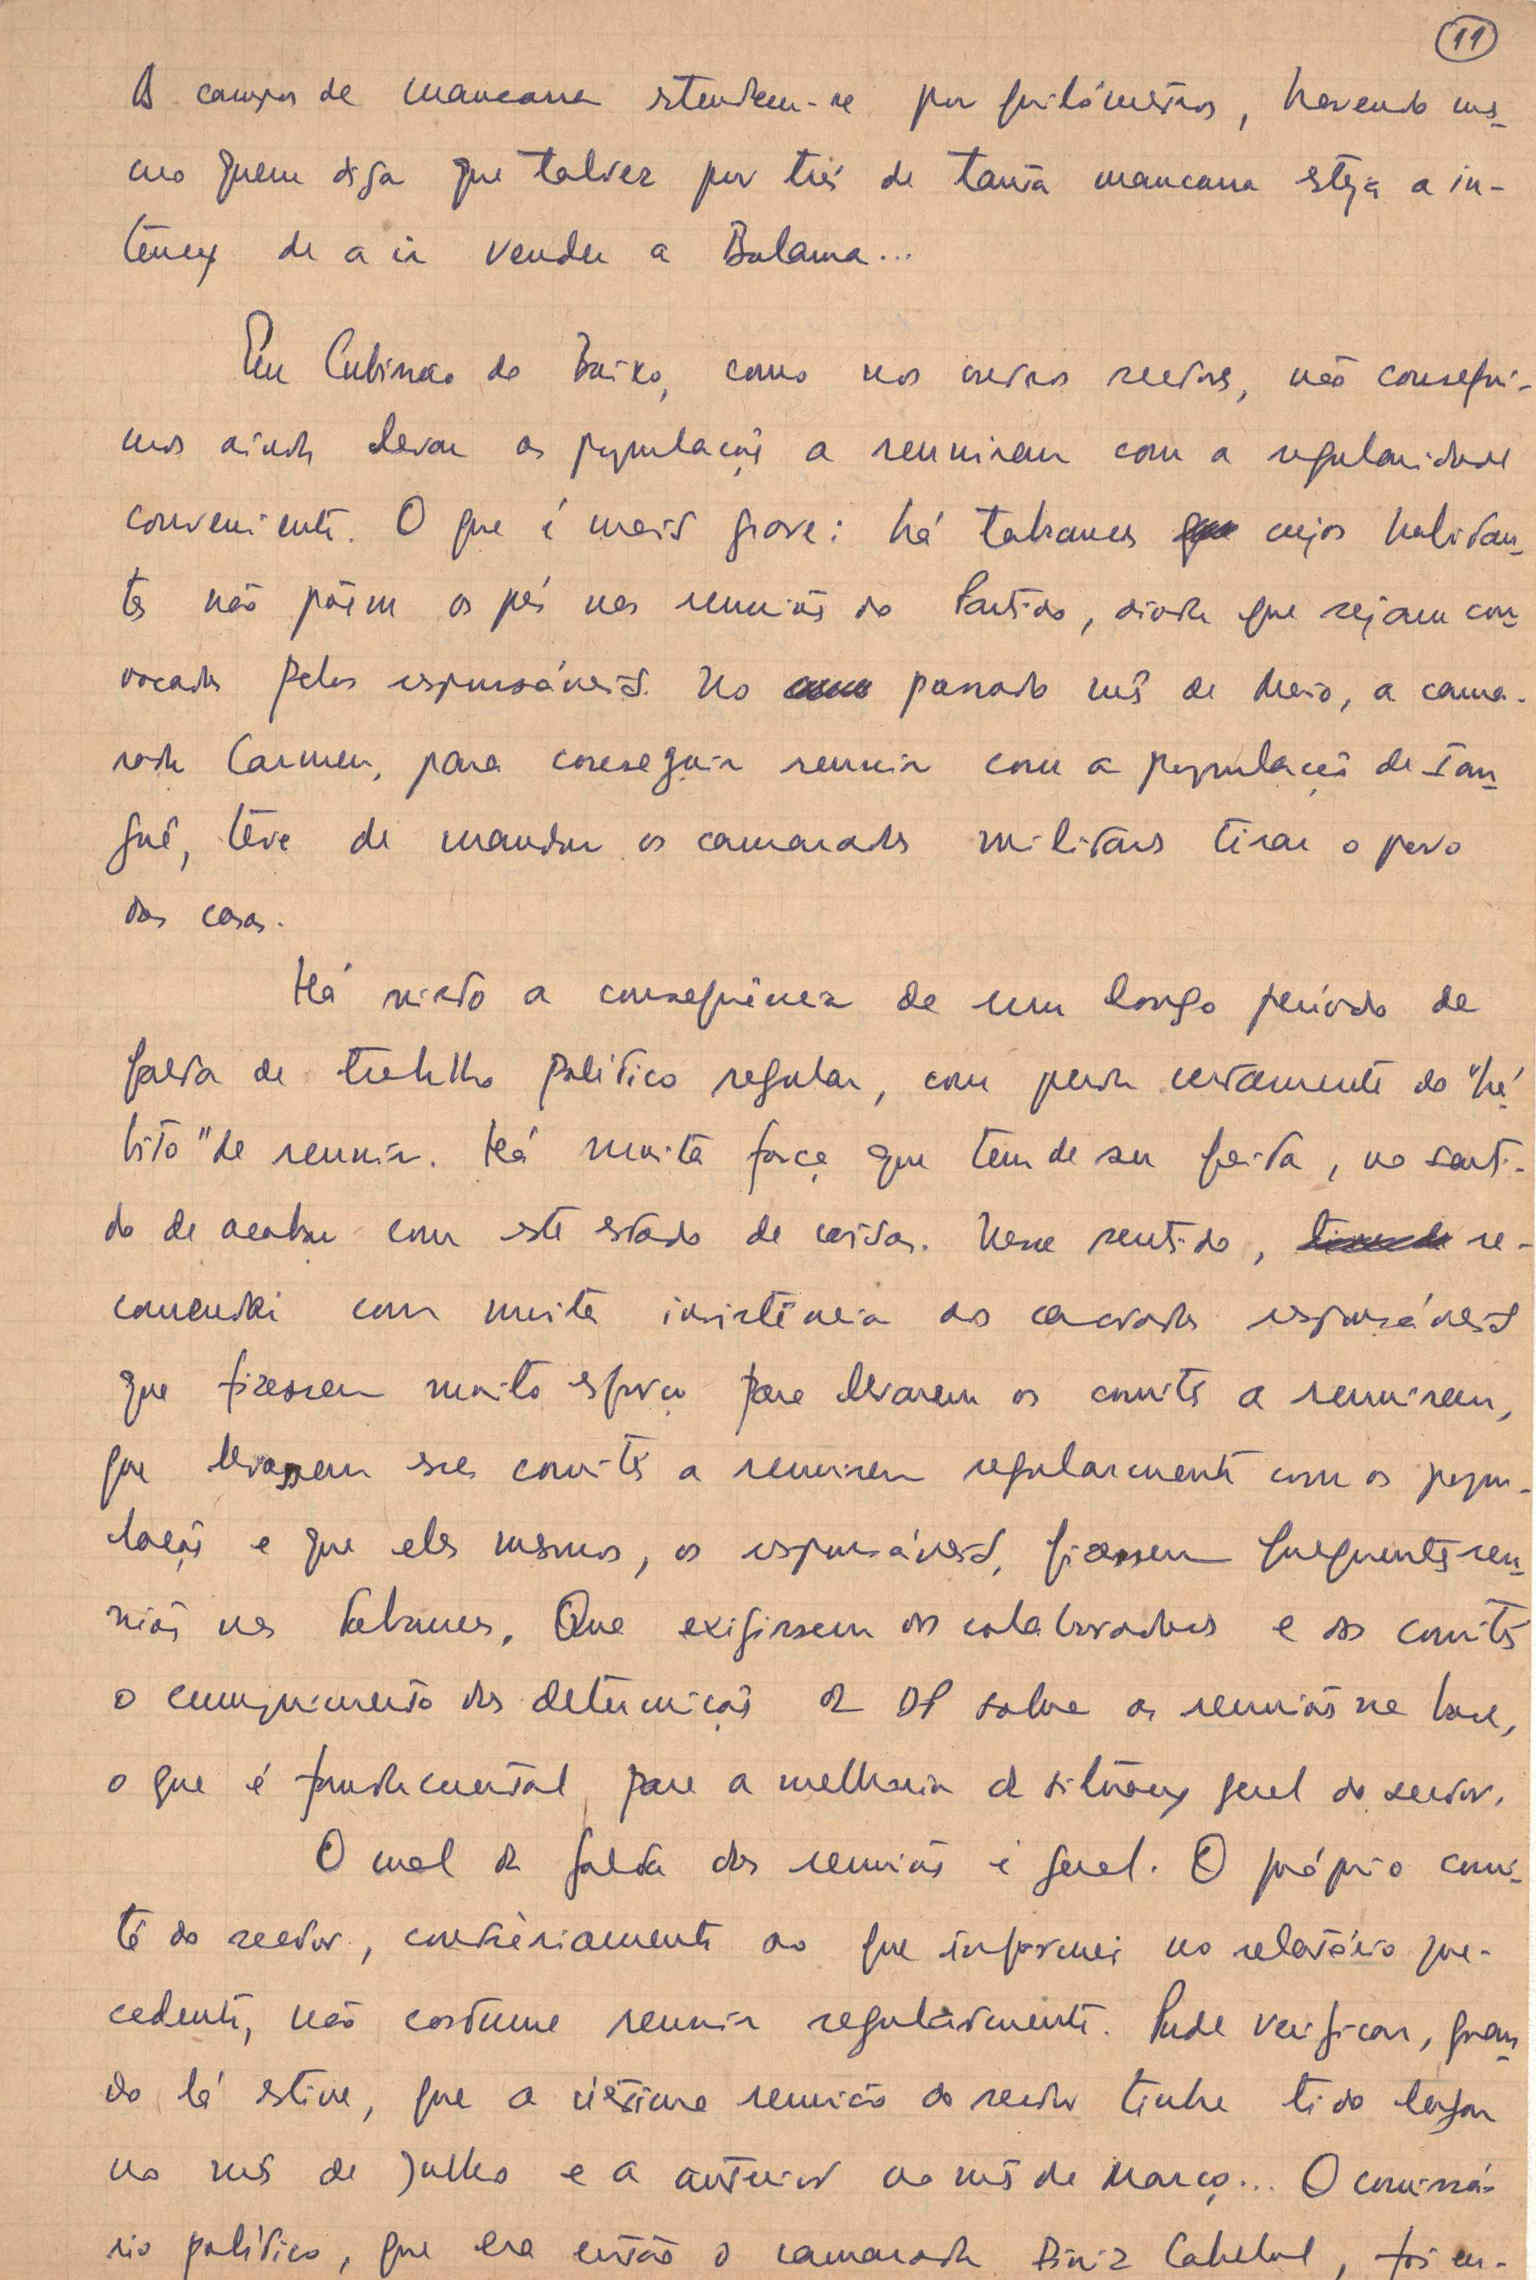 11
Os campos de mancarra estendem-se por quilómetros, havendo mes-
mo quem diga que talvez por trás de tanta mancarra esteja a in-
tenção de a ir vender a Bolama...
Em Cubisseco de Baixo, como nos outros sectores, não consegui-
mos ainda levar as populações a reunirem com a regularidade
conveniente. O que é mais grave: há tabancas cujos habitan-
tes não põem os pés nas reuniões do Partido, ainda que sejam con-
vocadas pelos responsáveis. No passado mês de Maio, a cama-
rada Carmen, para conseguir reunir com a população de
teve de mandar os camaradas militares tirar o povo
das casas.
Há nisto a consequência de um longo período de
falta de trabalho político regular, com perda certamente do "há-
bito" de reunir. Há muita força que tem de ser feita, no senti-
do de acabar com este estado de coisas. Nesse sentido, re-
comendei com muita insistência aos camaradas responsáveis
que fizessem muito esforço para levarem os comités a reunirem,
que levassem esses comités a reunirem regularmente com as popu-
lações e que eles mesmos, os responsáveis, fizessem frequentes reu-
niões nas tabancas. Que exigissem aos colaboradores e aos comités
o cumprimento das determinações da DP sobre as reuniões na base,
o que é fundamental para a melhoria da situação geral do sector.
O mal da falta das reuniões é geral. O próprio comi-
té do sector, contràriamente ao que informei no relatório pre-
cedente, não costuma reunir regularmente. Pude verificar, quan-
do lá estive, que a última reunião do sector tinha tido lugar
no mês de Julho e a anterior no mês de Março... O comissá-
rio político, que era então o camarada Diniz Cabelol, foi en-